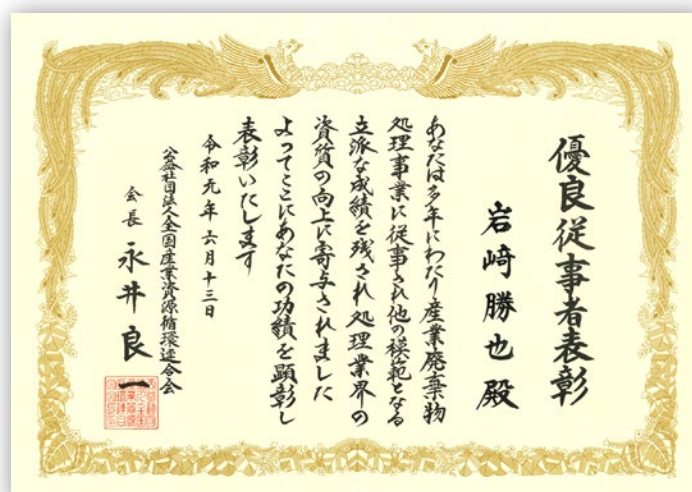 優良従事者表彰
岩﨑勝也殿
あなたは多年にわたり産業廃棄物
処理事業に従事され他の模範となる
立派な成績を残され処理業界の
資質の向上に寄与されました
よってここにあなたの功績を顕彰し
表彰いたします
令和元年六月十三日
公益社団法人全国産業資源循環連合会
会長 永井良一